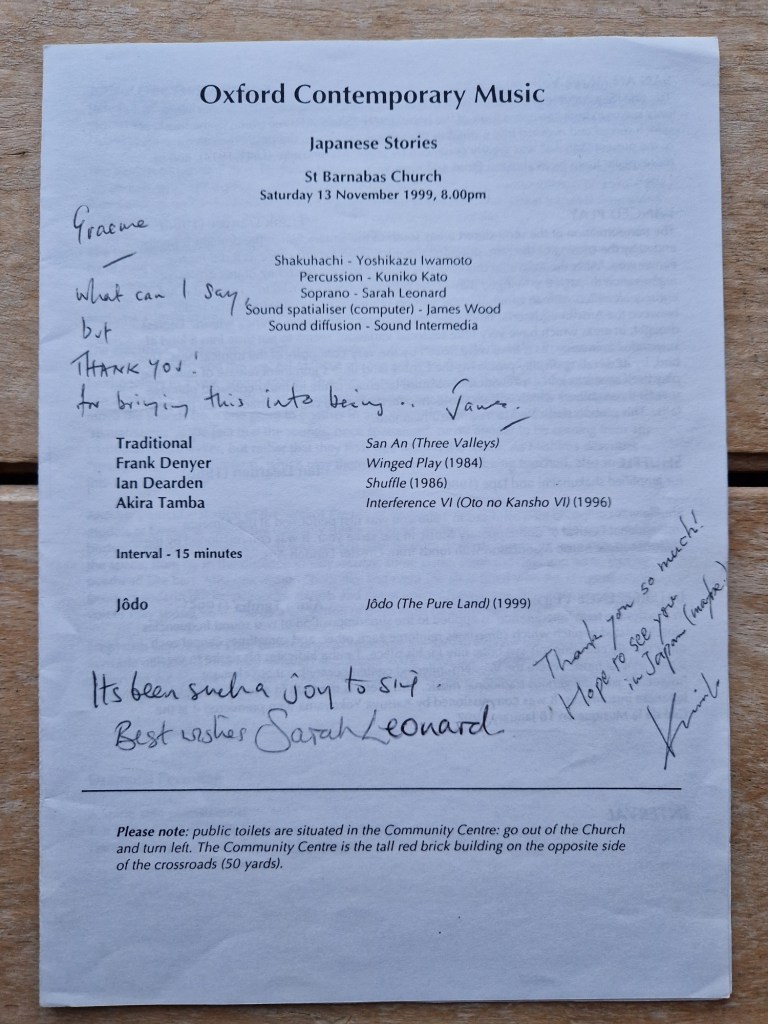 Oxford Contemporary Music
Japanese Stories
St Barnabas Church
Saturday 13 November 1999, 8.00pm
Graeme
Shakuhachi - Yoshikazu Iwamoto
Percussion - Kuniko Kato
Soprano - Sarah Leonard
Sound spatialiser (computer) - James Wood
Sound diffusion - Sound Intermedia
what can I say,
but
THANK YOU!
for bringing this into being .. James.
Traditional San An (Three Valleys)
Frank Denyer Winged Play (1984)
Ian Dearden Shuffle (1986)
Akira Tamba Interference VI (Oto no Kansho VI) (1996)
Interval - 15 minutes
Jôdo Jôdo (The Pure Land) (1999)
Thank you so much!
Hope to see you
in Japan (maybe.)
Its been such a joy to sing.
Best wishes Sarah Leonard
Please note: public toilets are situated in the Community Centre: go out of the Church
and turn left. The Community Centre is the tall red brick building on the opposite side
of the crossroads (50 yards).